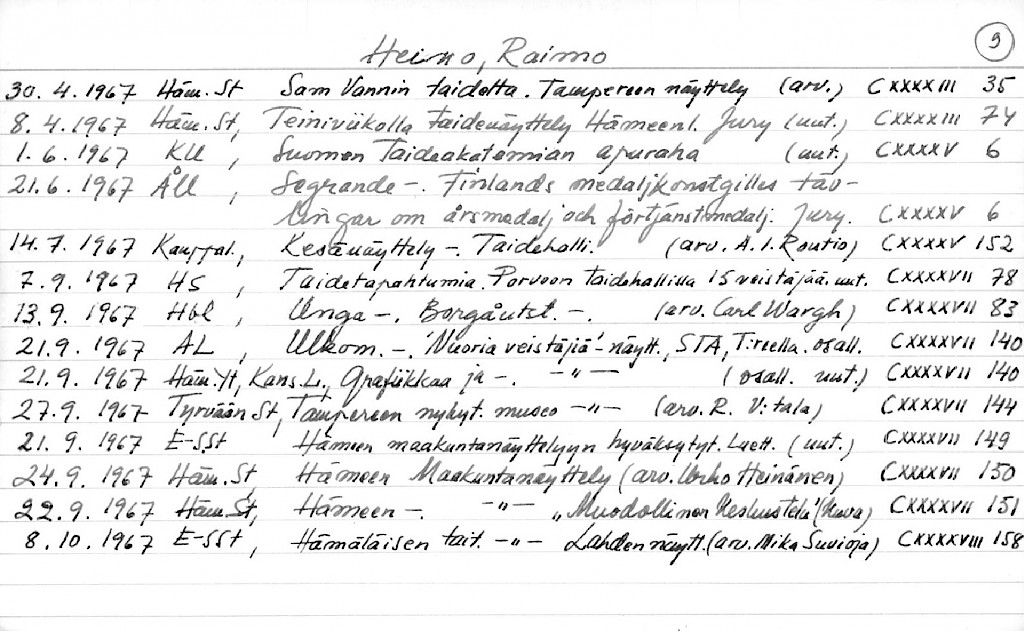 9
Heino, Raimo
30.4.1967 Häm.St Sam Vannin taidetta. Tampereen näyttely (arv.) CXXXXIII 35
8.4.1967 Häm.St, Teiniviikolla taidenäyttely Hämeenl. Jury (uut.) CXXXXIII 74
1.6.1967 KU, Suomen Taideakatemian apuraha (uut.) CXXXXV 6
21.6.1967 ÅU, Segrande -. Finlands medaljkonstgilles täv-
lingar om årsmedalj och förtjänstmedalj. Jury. CXXXXV 6
14.7.1967 Kauppal., Kesänäyttely -. Taidehalli. (arv. A.I. Routio) CXXXXV 152
7.9.1967 HS, Taidetapahtumia. Porvoon taidehallissa 15 veistäjää. uut. CXXXXVII 78
13.9.1967 Hbl, Unga -. Borgåutst. -. (arv. Carl Wargh) CXXXXVII 83
21.9.1967 AL, Ulkom. -. 'Nuoria veistäjiä'-näytt., STA, T:reella. osall. CXXXXVII 140
21.9.1967 Häm.Yt, Kans.L., Grafiikkaa ja -. -"- (osall. uut.) CXXXXVII 140
27.9.1967 Tyrvään St, Tampereen nykyt. museo -"- (arv. R. V:tala) CXXXXVII 144
21.9.1967 E-SSt Hämeen maakuntanäyttelyyn hyväksytyt. Luett. (uut.) CXXXXVII 149
24.9.1967 Häm.St, Hämeen Maakuntanäyttely (arv. Urho Heinänen) CXXXXVII 150
22.9.1967 Häm.St, Hämeen -. -"- "Muodollinen Keskustelu" (kuva) CXXXXVII 151
8.10.1967 E-SSt, Hämäläisen tait. -"- Lahden näytt. (arv. Mika Suvioja) CXXXXVIII 158